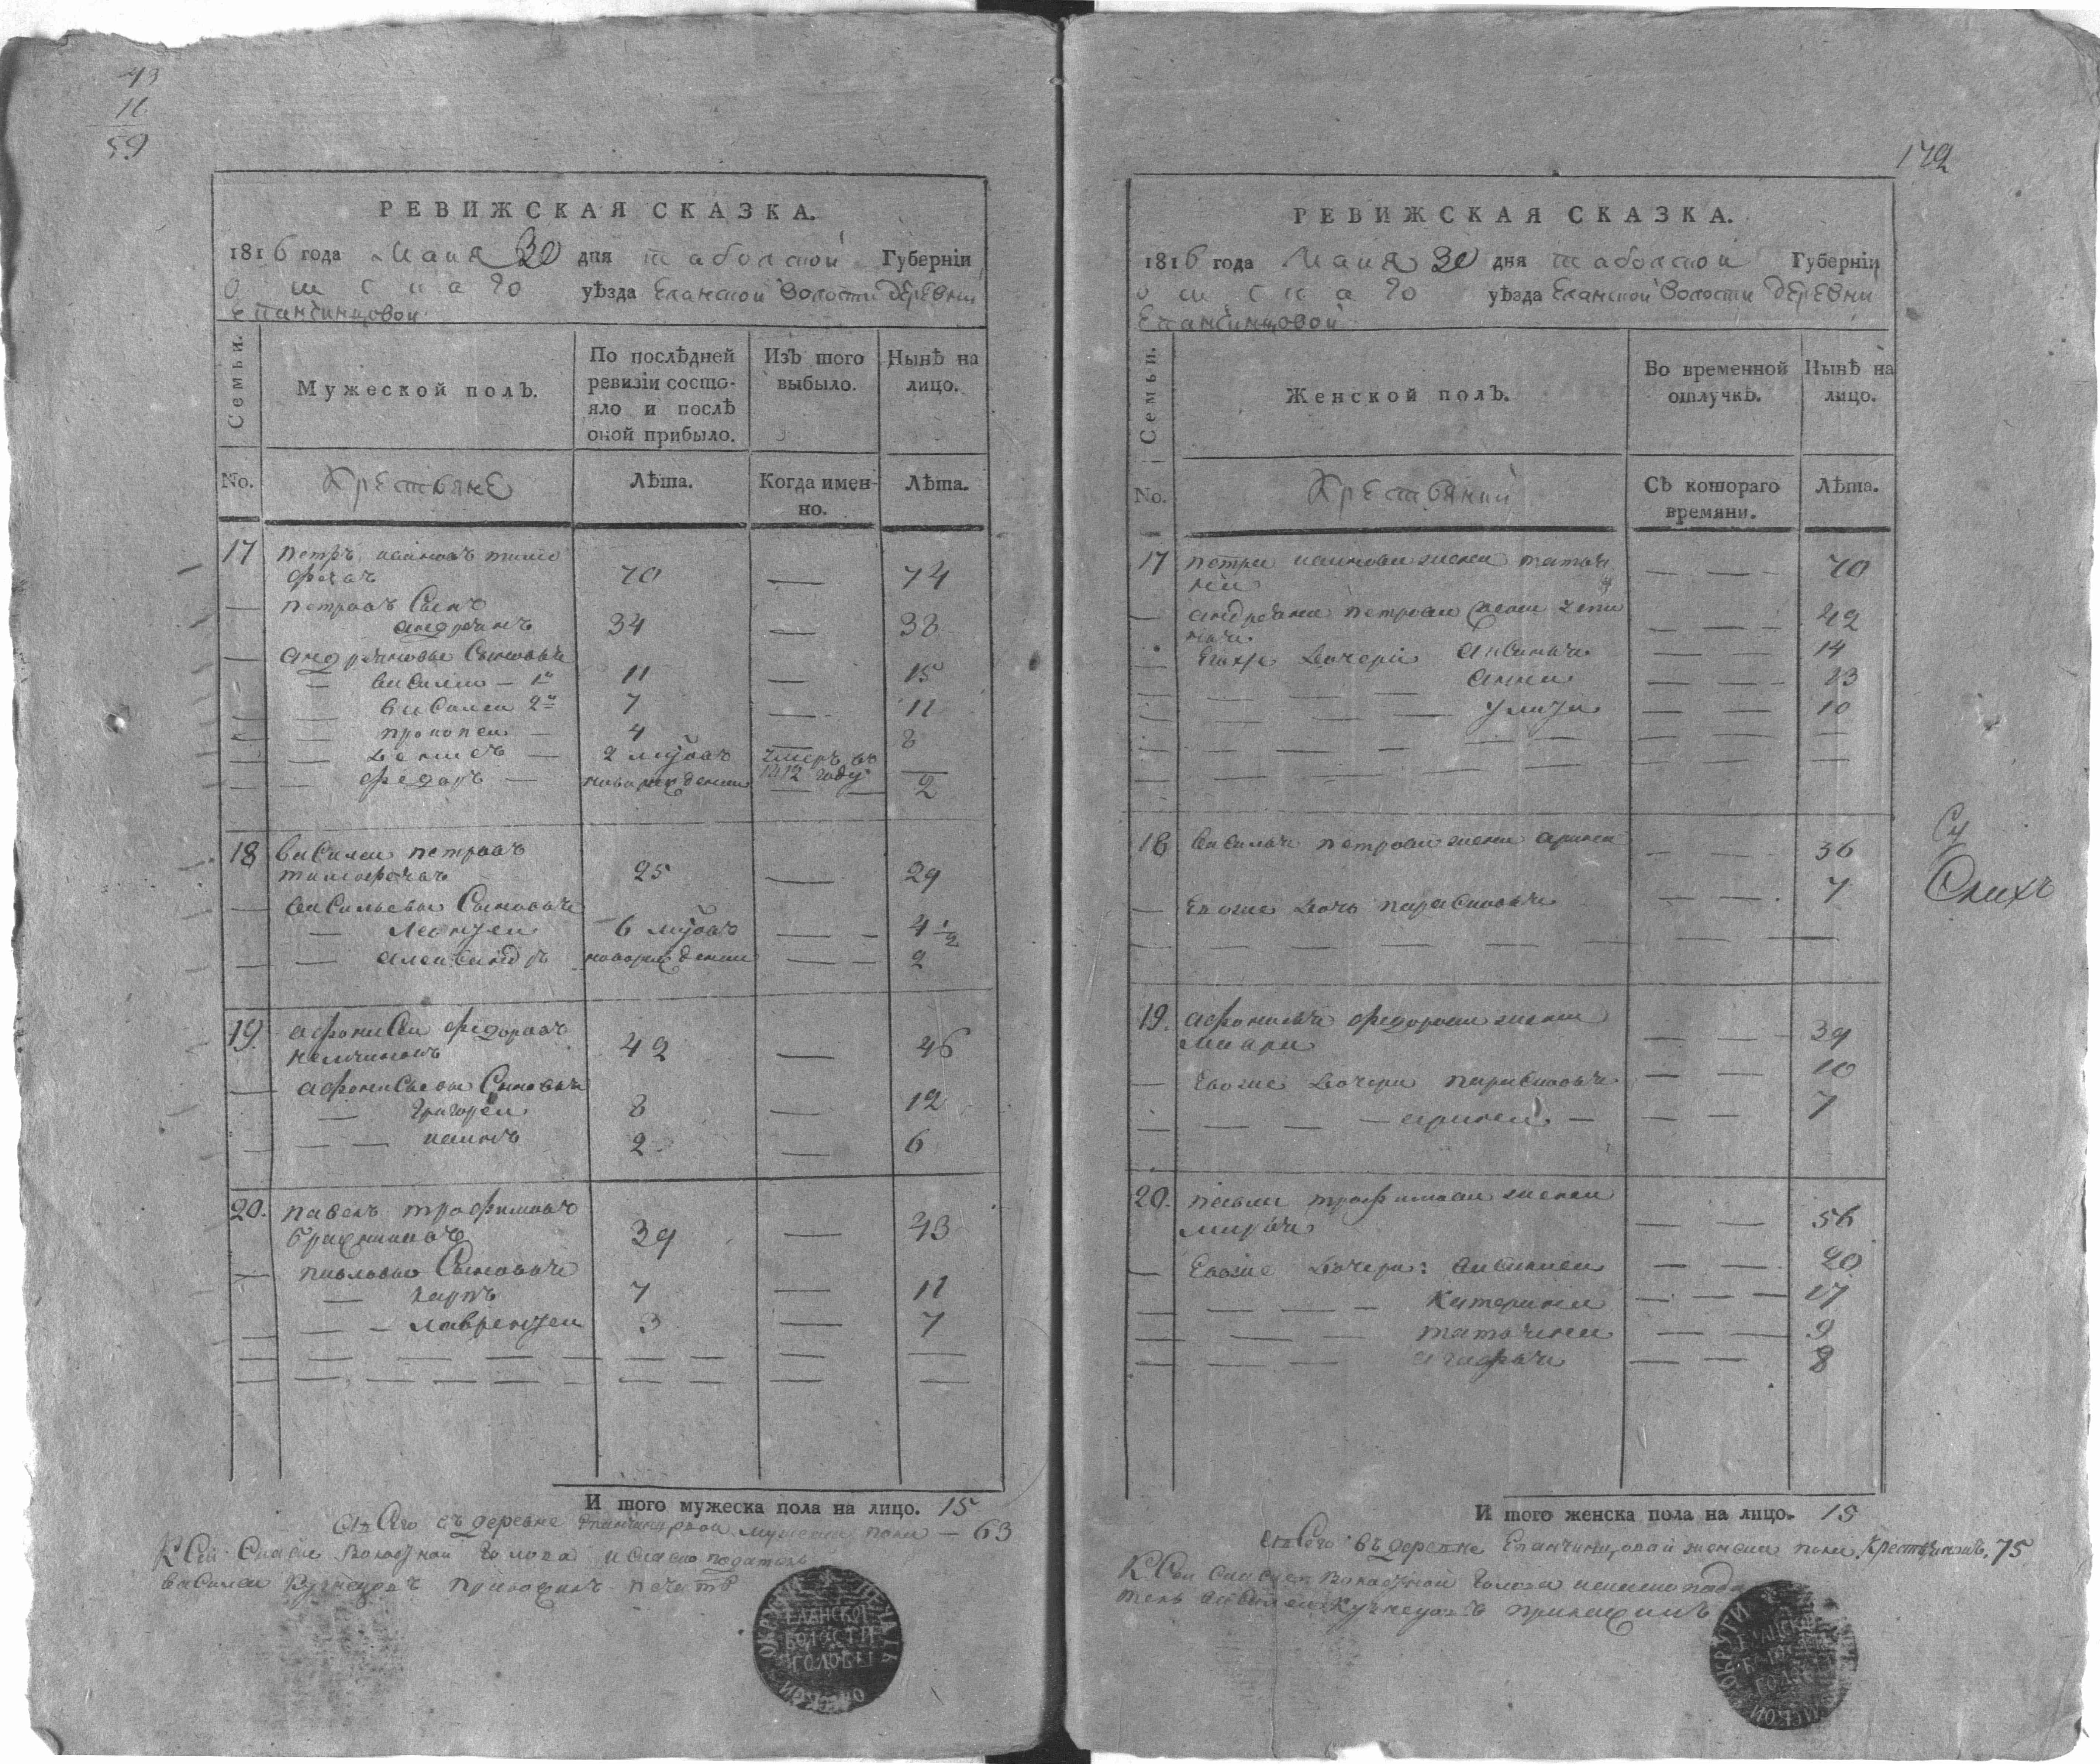 43
16
59
РЕВИЖСКАЯ СКАЗКА.
1816 года Маия 30 дня таболской Губерніи
Омскаго уѣзда Еланской волости деревни
Епанчинцовой
Семьи.
Мужеской полъ.
По послѣдней ревизіи состо-
яло и послѣ
оной прибыло.
Изъ того
выбыло.
Нынѣ на
лицо.
No.
Крестьяне
Лѣта.
Когда имен-
но.
Лѣта.
17 петръ ивановъ тимо
феевъ 70 — 74
— петровъ Сынъ
андреянъ 34 — 38
— андреяновы Сыновья
— василеи – 1й 11 — 15
— — василеи 2й 7 — 11
— — прокопеи — 4 8
— — денисъ — 2 мцовъ умеръ въ —
1812 году
— — федоръ — новорожденны — — 2
18 василеи петровъ
тимофеевъ 25 — 29
— васильевы Сыновья
— леонтеи 6 мцовъ — — 4 1/2
— — александръ новорожденны — — 2
19. афонасеи федоровъ
42 — 46
— афонасьевы Сыновья
— григореи 8 — 12
— — — иванъ 2 — 6
20. павелъ трофимовъ
39 — 43
— павловы Сыновья
— карпъ 7 — 11
— — – лаврентеи 3 — 7
И того мужеска пола на лицо. 15
Въсего въ деревне Епанчинцовой мужеска пола — 63
К Сеи Скаске волостной голова и скаско податель
василеи Кузнецовъ приложилъ печать
ОКРУГИ ПЕЧАТЬ ОМСКОЙ
ЕЛАНСКОЙ
ВОЛОСТИ
ГОЛОВЫ
172
РЕВИЖСКАЯ СКАЗКА.
1816 года Маия 30 дня таболской Губерніи
Омскаго уѣзда Еланской волости деревни
Епанчинцовой
Семьи.
Женской полъ.
Во временной
отлучкѣ.
Нынѣ на
лицо.
No.
Крестьянки
Съ котораго
времяни.
Лѣта.
17 петра иванова жена татья
на — — — 70
— андреяна петрова жена
— — — 42
— Евоже дочери аксинья — — — 14
анна — — — 13
— — — — улита — — — 10
18 василья петрова жена арина — — — 36
— Евоже дочь парасковья — — — 7
19. афонасья федорова жена
макра — — — 39
— Евоже дочери парасковья — — 10
— — — — арина — — — 7
20. павла трофимова жена
марья — — 56
— Евоже дочери: — — 20
— — — — катерина — — — 17
— — — — татьяна — — 9
— — — — агафья — — 8
И того женска пола на лицо. 15
Въсего въ деревне Епанчинцовой женска пола крестьянъ. 75
К Сеи Скаске волостной голова и скаско пода
тель василеи Кузнецовъ приложилъ
ОКРУГИ ОМСКОЙ
ЕЛАНСКОЙ